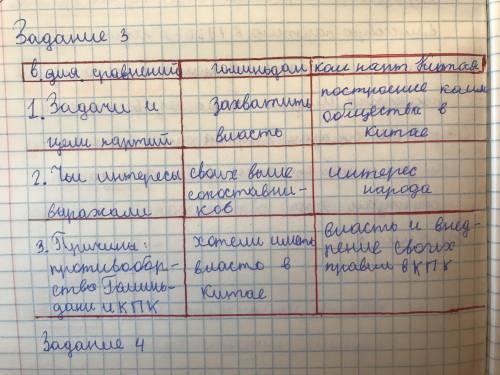 Задание 3
в. для сравнений гоминьдан ком парт Китая
1. Задачи и цели партий
захватить власть
построение комм общества в Китае
2. Чьи интересы выражали
своих выше сопоставни-
ков
интерес народа
3. Причины:
противобор-
ство Гоминь-
дана и КПК
хотели иметь
власть в
Китае
власть и внед-
рение своих
правил в КПК
Задание 4